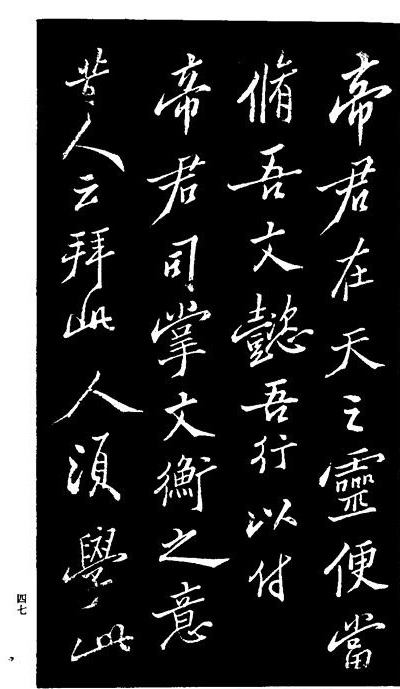 帝君在天之靈便當
脩吾文懿吾行以付
帝君司掌文衡之意
昔人云拜此人須學此
四七